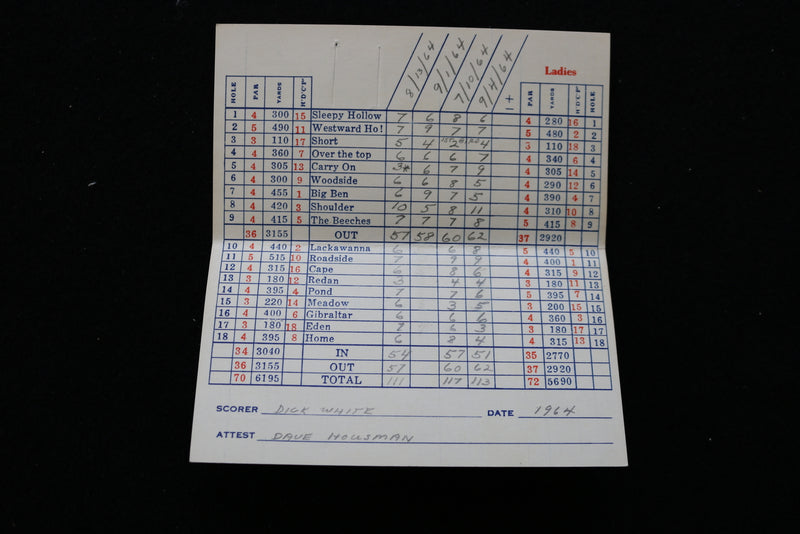 8/13/64 9/1/64 7/10/64 9/4/64 1+
Ladies
HOLE PAR YARDS H'D'C'P' PAR YARDS H'D'C'P' HOLE
1 4 300 15 Sleepy Hollow 7 6 8 6 4 280 16 1
2 5 490 11 Westward Ho! 7 9 7 7 5 480 2 2
3 3 110 17 Short 5 4 2 4 3 110 18 3
4 4 360 7 Over the top 6 6 6 7 4 340 6 4
5 4 305 13 Carry On 3* 6 7 9 4 305 14 5
6 4 300 9 Woodside 6 6 8 5 4 290 12 6
7 4 455 1 Big Ben 6 9 7 5 4 390 4 7
8 4 420 3 Shoulder 10 5 8 11 4 310 10 8
9 4 415 5 The Beeches 7 7 7 8 5 415 8 9
36 3155 OUT 57 58 60 62 37 2920
10 4 440 2 Lackawanna 6 6 8 5 440 5 10
11 5 515 10 Roadside 7 9 9 4 400 1 11
12 4 315 16 Cape 6 8 6 4 315 9 12
13 3 180 12 Redan 3 4 4 3 180 11 13
14 4 395 4 Pond 7 7 6 5 395 7 14
15 3 220 14 Meadow 6 3 5 3 200 15 15
16 4 400 6 Gibraltar 6 6 6 4 360 3 16
17 3 180 18 Eden 7 6 3 3 180 17 17
18 4 395 8 Home 6 8 4 4 315 13 18
34 3040 IN 54 57 51 35 2770
36 3155 OUT 57 60 62 37 2920
70 6195 TOTAL 111 117 113 72 5690
SCORER DICK WHITE DATE 1964
ATTEST DAVE HOUSMAN